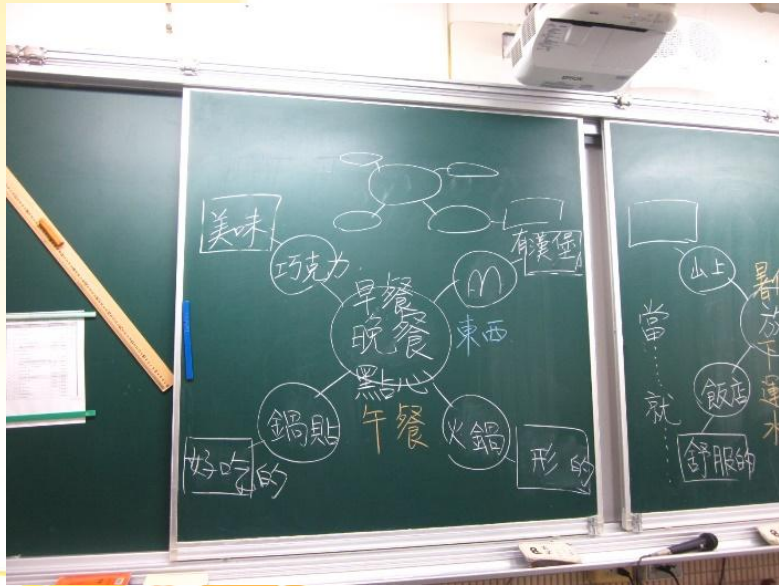 美味
巧克力
有漢堡
早餐
晚餐
點心
東西
午餐
鍋貼
好吃的
火鍋
形的
山上
當……就……
飯店
舒服的